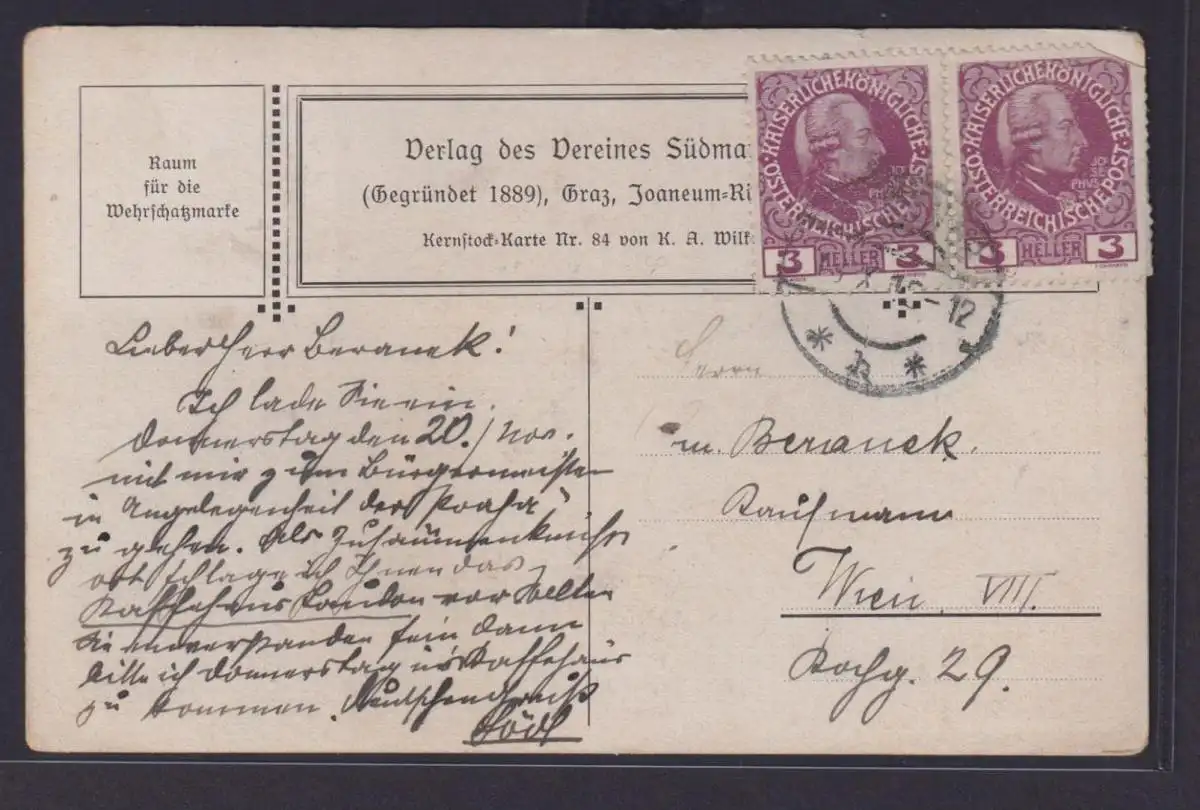 Raum
für die
Wehrschatzmarke
Verlag des Vereines Südma
(Gegründet 1889), Graz, Joaneum-Ri
Kernstock-Karte Nr. 84 von K. A. Wilk
ÖSTERREICHISCHE POST KAISERLICHE KÖNIGLICHE
JOSEPHUS
3 HELLER 3
KAISERLICHE KÖNIGLICHE ÖSTERREICHISCHE POST
JOSEPHUS
3 HELLER 3
12
Lieber Herr Beranek!
Ich lade Sie ein,
Donnerstag den 20./Nov.
mit mir zum Bürgermeister
in Angelegenheit der "Praha"
zu gehen. Als Zusammenkunfts
ort schlage ich Ihnen das
Kaffehaus Laudon vor sollten
Sie einverstanden sein dann
bitte ich Donnerstag ins Kaffehaus
zu kommen. Deutschengruß
Födl
Herrn
M. Beranek.
Kaufmann
Wien, VIII.
Kochg. 29.